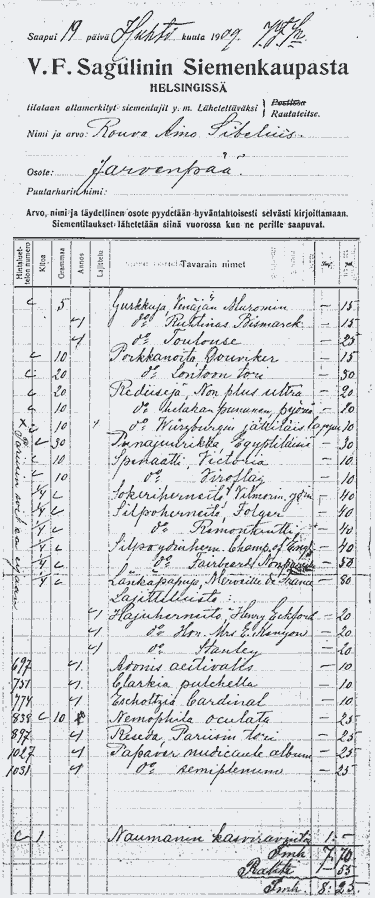 Saapui 19 päivä Huhti kuuta 1909.
V. F. Sagulinin Siemenkaupasta
HELSINGISSÄ
tilataan allamerkityt siemenlajit y. m. Lähetettäväksi Postissa Rautateitse.
Nimi ja arvo: Rouva Aino Sibelius.
Osote: Järvenpää.
Puutarhurin nimi:
Arvo, nimi ja täydellinen osote pyydetään hyväntahtoisesti selvästi kirjoittamaan.
Siementilaukset lähetetään siinä vuorossa kun ne perille saapuvat.
Hintaluettelon numero Kiloa Grammaa Annos Lajitelu Tavarain nimet
5 Gurkkuja Venäjän Muromin — 15
1 do Ruhtinas Bismarck — 15
1 do Toulouse — 25
10 Porkkanoita Duwicker — 15
20 do Lontoon tori — 30
20 Redisejä, Non plus ultra — 20
10 do — 10
10 do Würzburgin jättiläis — 10
30 Punajuurikka Egyptiläinen — 30
10 Spenaatti, Victoria — 10
10 do Viroflay — 10
1/4 Sokeriherneitä, Vilmorin — 40
1/4 Silpoherneitä, Folger — 40
1/4 do Remontantti — 40
1/4 Silpoydinhern. Champ. of Engl. — 40
1/4 do Fairbeard Nonpareil — 50
1/4 Länkäpapuja, Merveille de France — 80
Lajittelusta:
1 Hajuherneitä, Henry Eckford — 20
1 do Hon. Mrs E. Kenyon — 20
1 do Stanley — 20
697 1 Adonis aestivalis — 10
751 1 Clarkia pulchella — 10
774 1 Escholtzia Cardinal — 10
838 10 Nemophila oculata — 25
897 1 Reseda, Pariisin tori — 25
1027 1 Papaver nudicaule album — 25
1031 1 do semiplenum — 25
1 Naumanin kasviravinto 1: —
Smk 7: 70
Rahti — 55
Smk. 8: 25